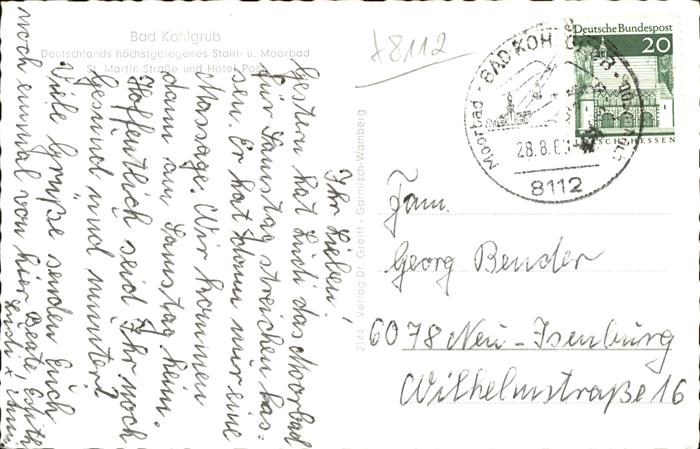 Bad Kohlgrub
Deutschlands höchstgelegenes Stahl- u. Moorbad
St. Martin-Straße und Hotel Post
x8112
Moorbad · BAD KOHLGRUB
28.8.6
8112
Deutsche Bundespost
20
LORSCH/HESSEN
Ihr Lieben!
Gestern hat Ludi das Moorbad
für Samstag streichen las-
sen. Er hat dann nur eine
Massage. Wir kommen
dann am Samstag heim.
Hoffentlich seid Ihr noch
gesund und munter?
Viele Grüße senden Euch
noch einmal von hier Beate,
2144 Verlag Dr. Greiff - Garmisch-Wamberg
Fam.
Georg Bender
6078 Neu-Isenburg
Wilhelmstraße 16